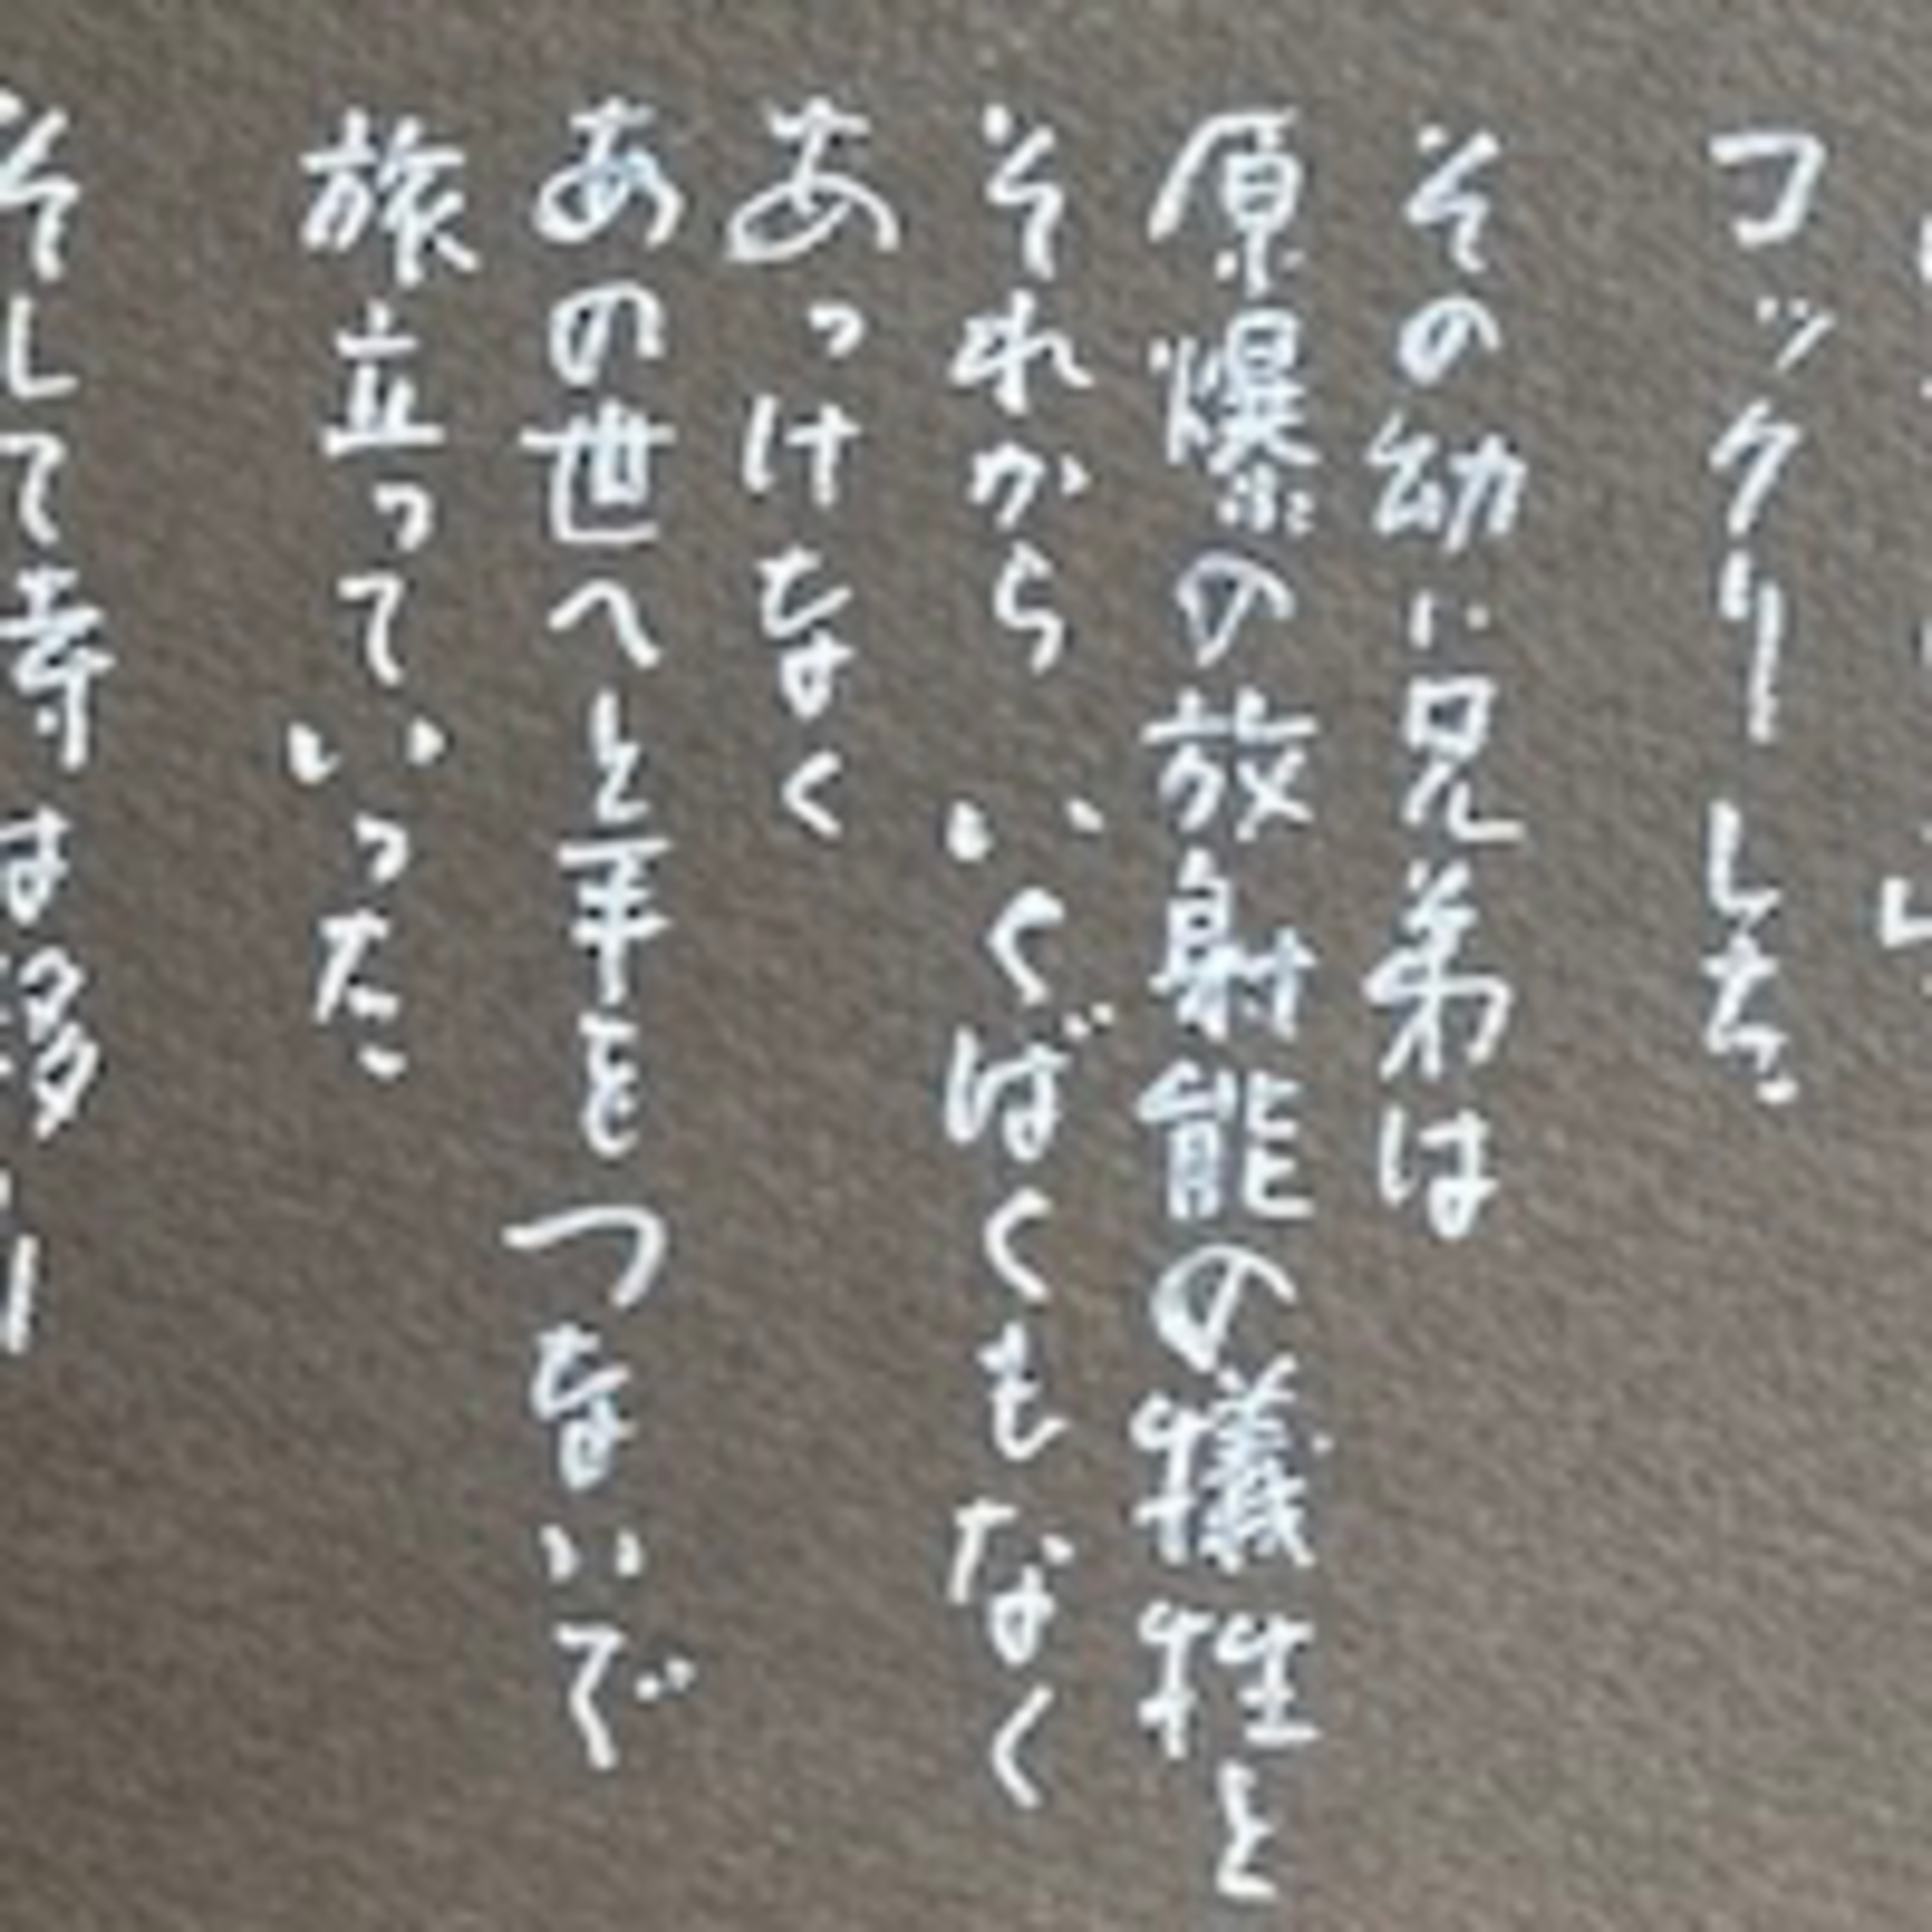 コックリした
その幼い兄弟は
原爆の放射能の犠牲と
それから いくばくもなく
あっけなく
あの世へと手をつないで
旅立っていった
そして寺は